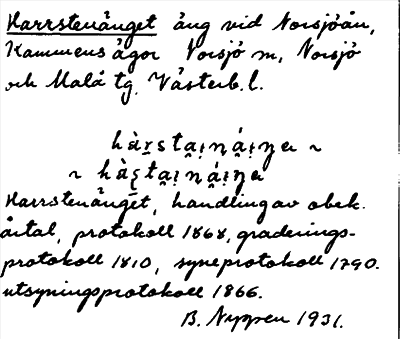 Harrstenånget äng vid Norsjöån,
Kammens ägor Norsjö sn, Norsjö
och Malå tg. Västerb. l.
Harrstenånget, handling av obek.
årtal, protokoll 1868, graderings-
protokoll 1810, syneprotokoll 1790.
utsyningsprotokoll 1866.
B. Nyppen 1931.